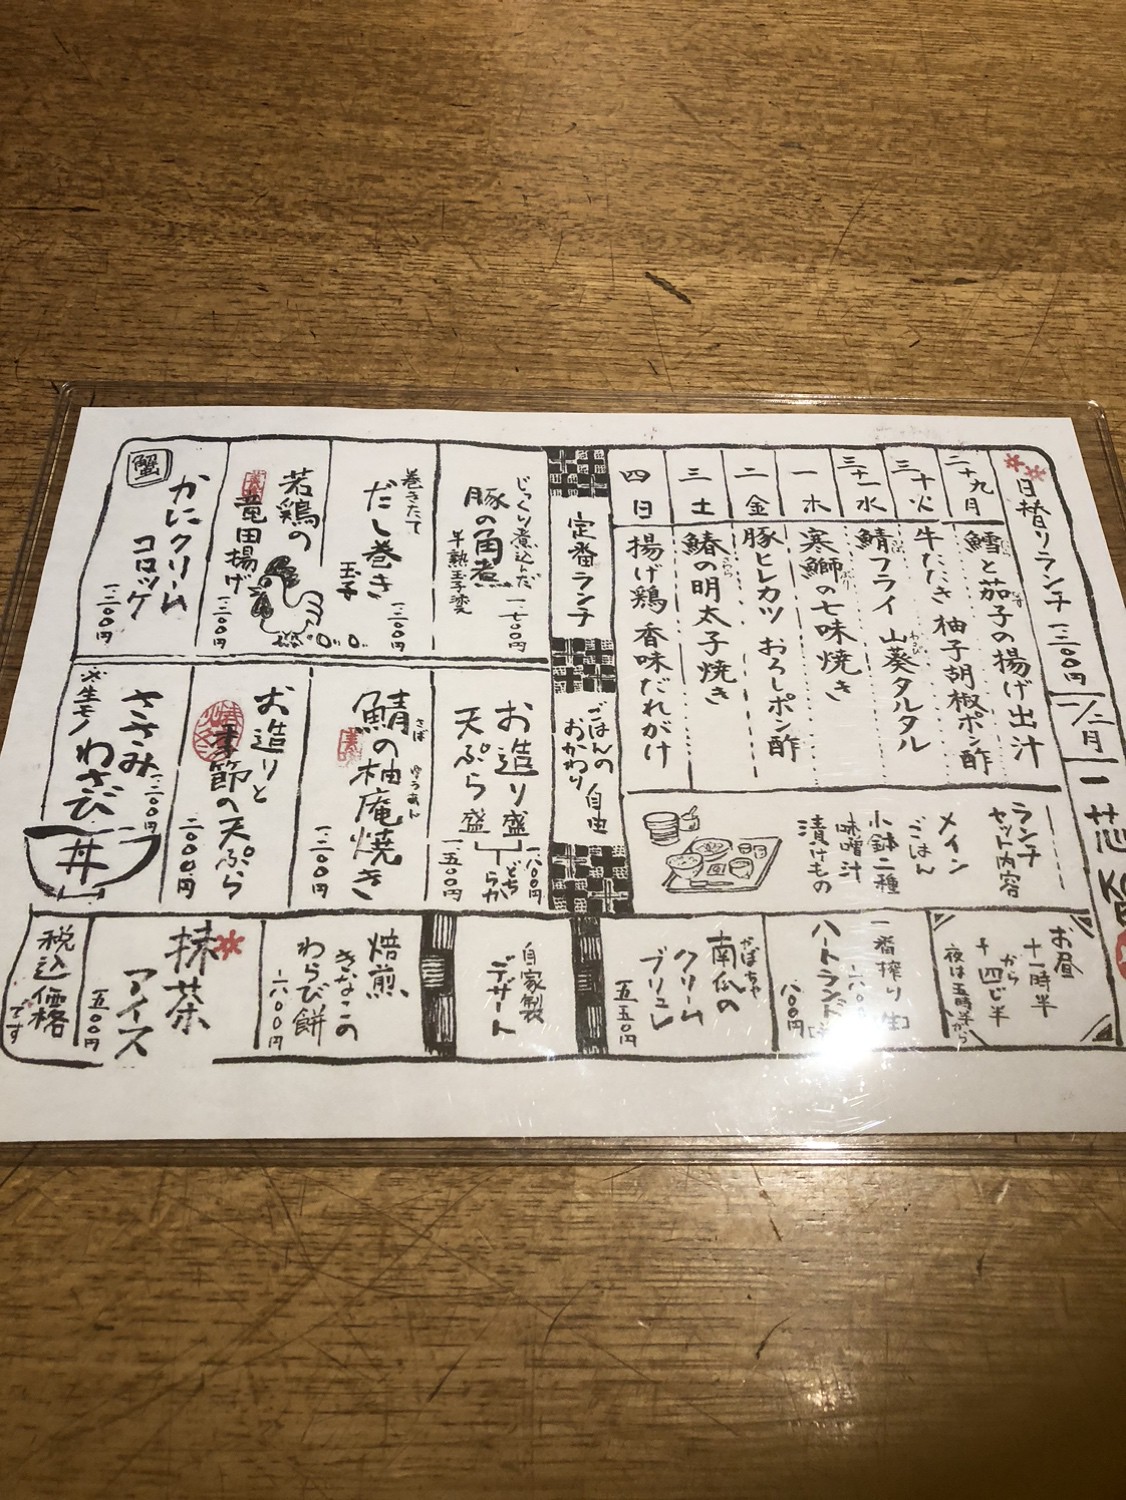 一芯
一/二月
日替りランチ 一三〇〇円
二十九月 鱈と茄子の揚げ出汁
三十火 牛たたき 柚子胡椒ポン酢
三十一水 鯖フライ 山葵タルタル
一木 寒鰤の七味焼き
二金 豚ヒレカツ おろしポン酢
三土 鰆の明太子焼き
四日 揚げ鶏 香味だれがけ
ランチ
セット内容
メイン
ごはん
小鉢二種
味噌汁
漬けもの
お昼
十一時半
から
十四じ半
夜は五時半から
一番搾り[生]
ハートランド
八〇〇円
かぼちゃ
南瓜の
クリーム
ブリュレ
五五〇円
定番ランチ
ごはんの
おかわり
自由
じっくり煮込んだ
豚の角煮
半熟玉子変
一、七〇〇円
巻きたて
だし巻き
玉子
一、二〇〇円
若鶏の
竜田揚げ
一、二〇〇円
蟹
かにクリーム
コロッケ
一、二〇〇円
お造り盛
天ぷら盛
どちらか
一、八〇〇円
一、五〇〇円
さば
ゆうあん
鯖の柚庵焼き
一、二〇〇円
お造りと
季節の天ぷら
二、〇〇〇円
ささみ
わさび
丼
※生モノ
自家製
デザート
焙煎、
きなこの
わらび餅
六〇〇円
抹茶
アイス
五〇〇円
税込価格
です